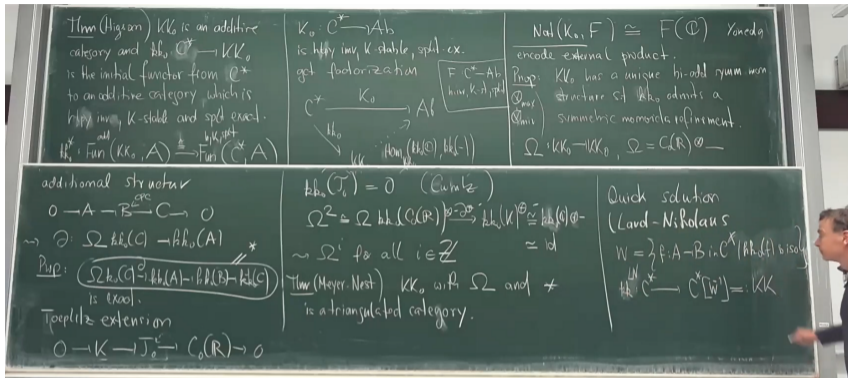 Thm (Higson) KK₀ is an additive
category and kk₀: C* → KK₀
is the initial functor from C*
to an additive category, which is
htpy inv, K-stable and split exact.
kk₀*: Fun^add(KK₀, A) → Fun(C*, A)
K₀: C* → Ab
is htpy inv, K-stable, split-ex.
get factorization
F: C* → Ab
h.inv, K-st, split
C* K₀ Ab
kk₀
KK₀ Hom(kk₀(ℂ), kk₀(-))
Nat(K₀, F) ≅ F(ℂ) Yoneda
encode external product.
Prop: KK₀ has a unique bi-add symm mon
⊗max structure s.t. kk₀ admits a
⊗min symmetric monoidal refinement.
Ω: KK₀ → KK₀, Ω = C₀(ℝ) ⊗ —
additional structur
0 → A → B → C → 0
cpc
⇝ ∂: Ω kk₀(C) → kk₀(A)
*
Prop: Ω kk₀(C) → kk₀(A) → kk₀(B) → kk₀(C)
is exact.
Toeplitz extension
0 → K → T₀ → C₀(ℝ) → 0
kk₀(T₀) = 0 (Cuntz)
Ω² ≃ Ω kk₀(C₀(ℝ)) ⊗ - → kk₀(K) ⊗ - ≅ kk₀(ℂ) ⊗ -
≃ id
⇝ Ωⁱ for all i ∈ ℤ
Thm (Meyer-Nest) KK₀ with Ω and *
is a triangulated category.
Quick solution
(Land-Nikolaus
W = {f: A → B in C* / kk₀(f) is iso}
kk^LN: C* → C*[W⁻¹] =: KK